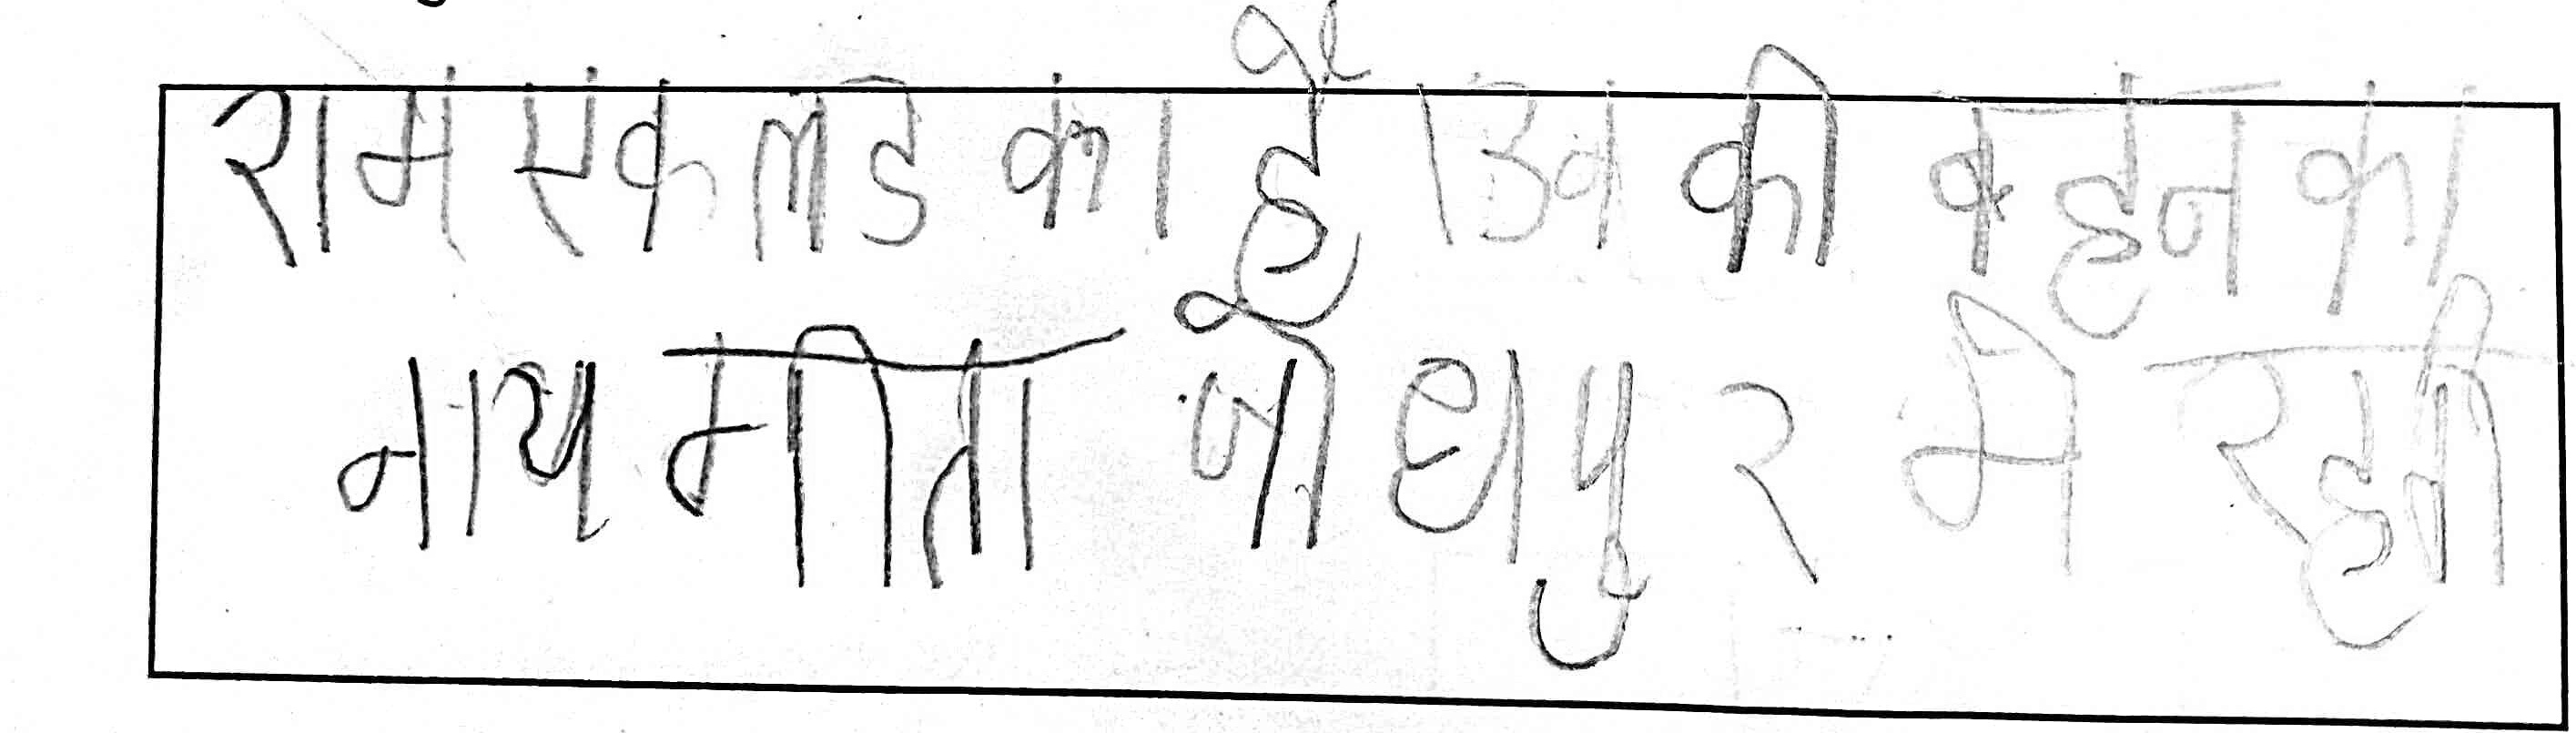 राम एक लडका है । उव की बहन का
नाय गीता जोधपुर मे रहती